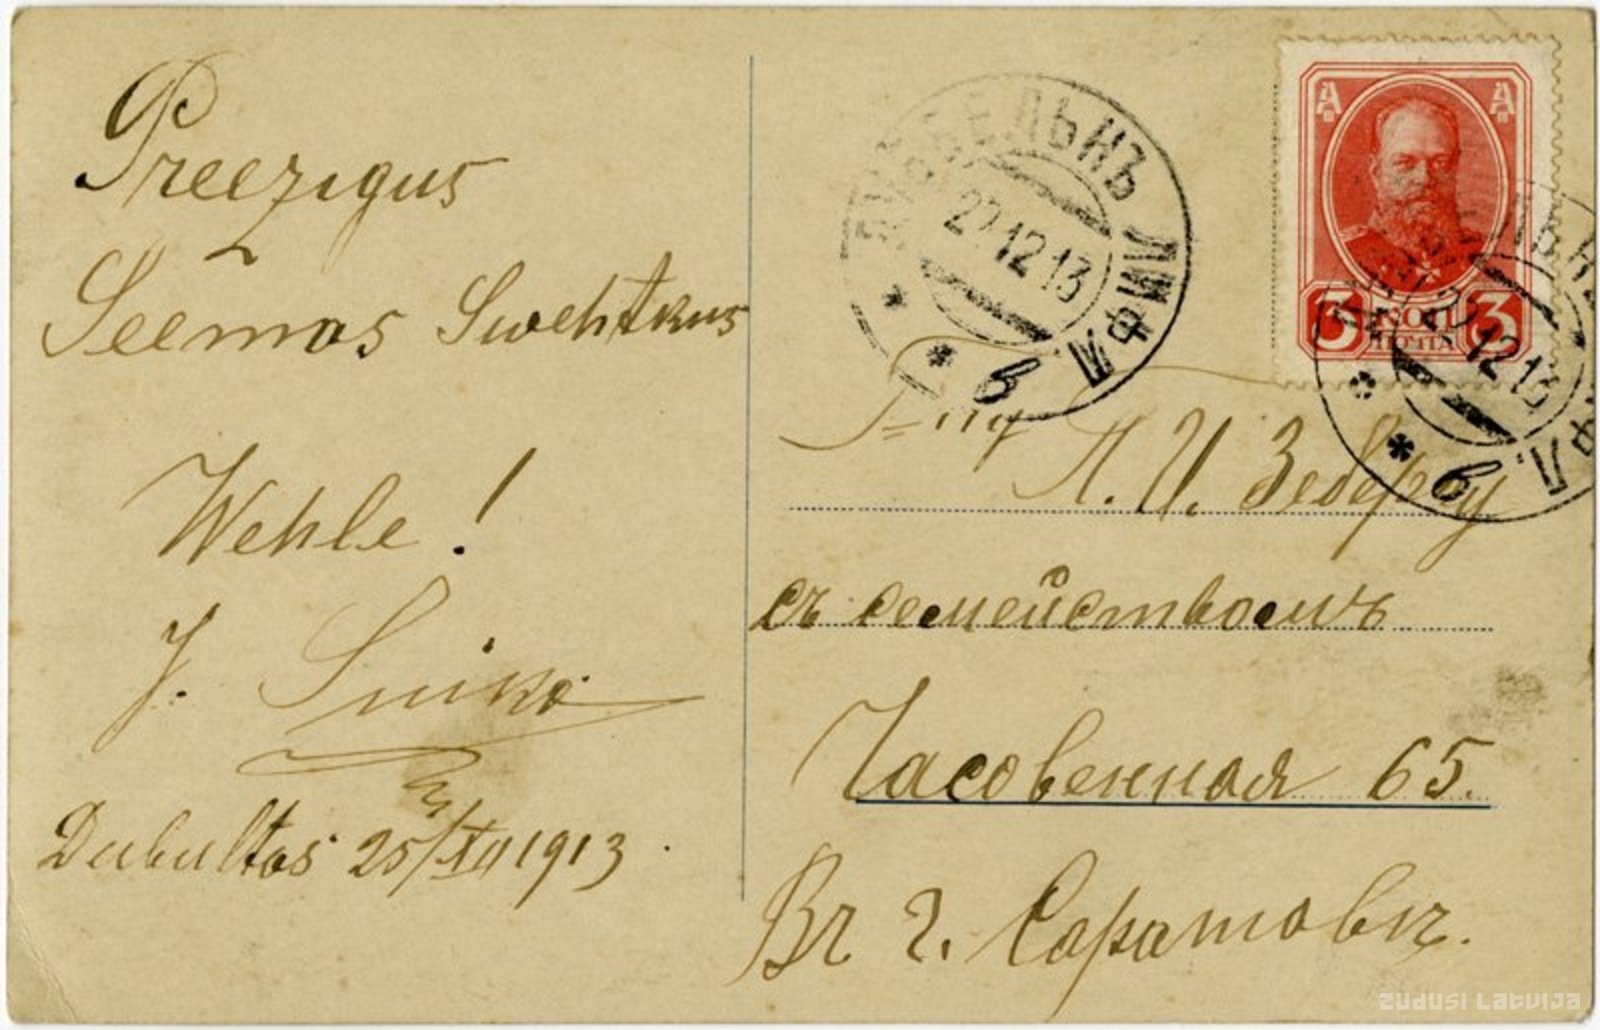 Preezigus
Seemas Swehtkus
Wehle!
J.
Dubultos 25/XII 1913.
ДУББЕЛЬНЪ ЛИФЛ.
27 12 13
в
А А
3 КОП 3
ПОЧТА
27 12 13
в
Г-ну
Л. И. Зебергу
съ семействомъ
Часовенная 65.
Въ г. Саратовъ.
ZUDUSI LATVIJA